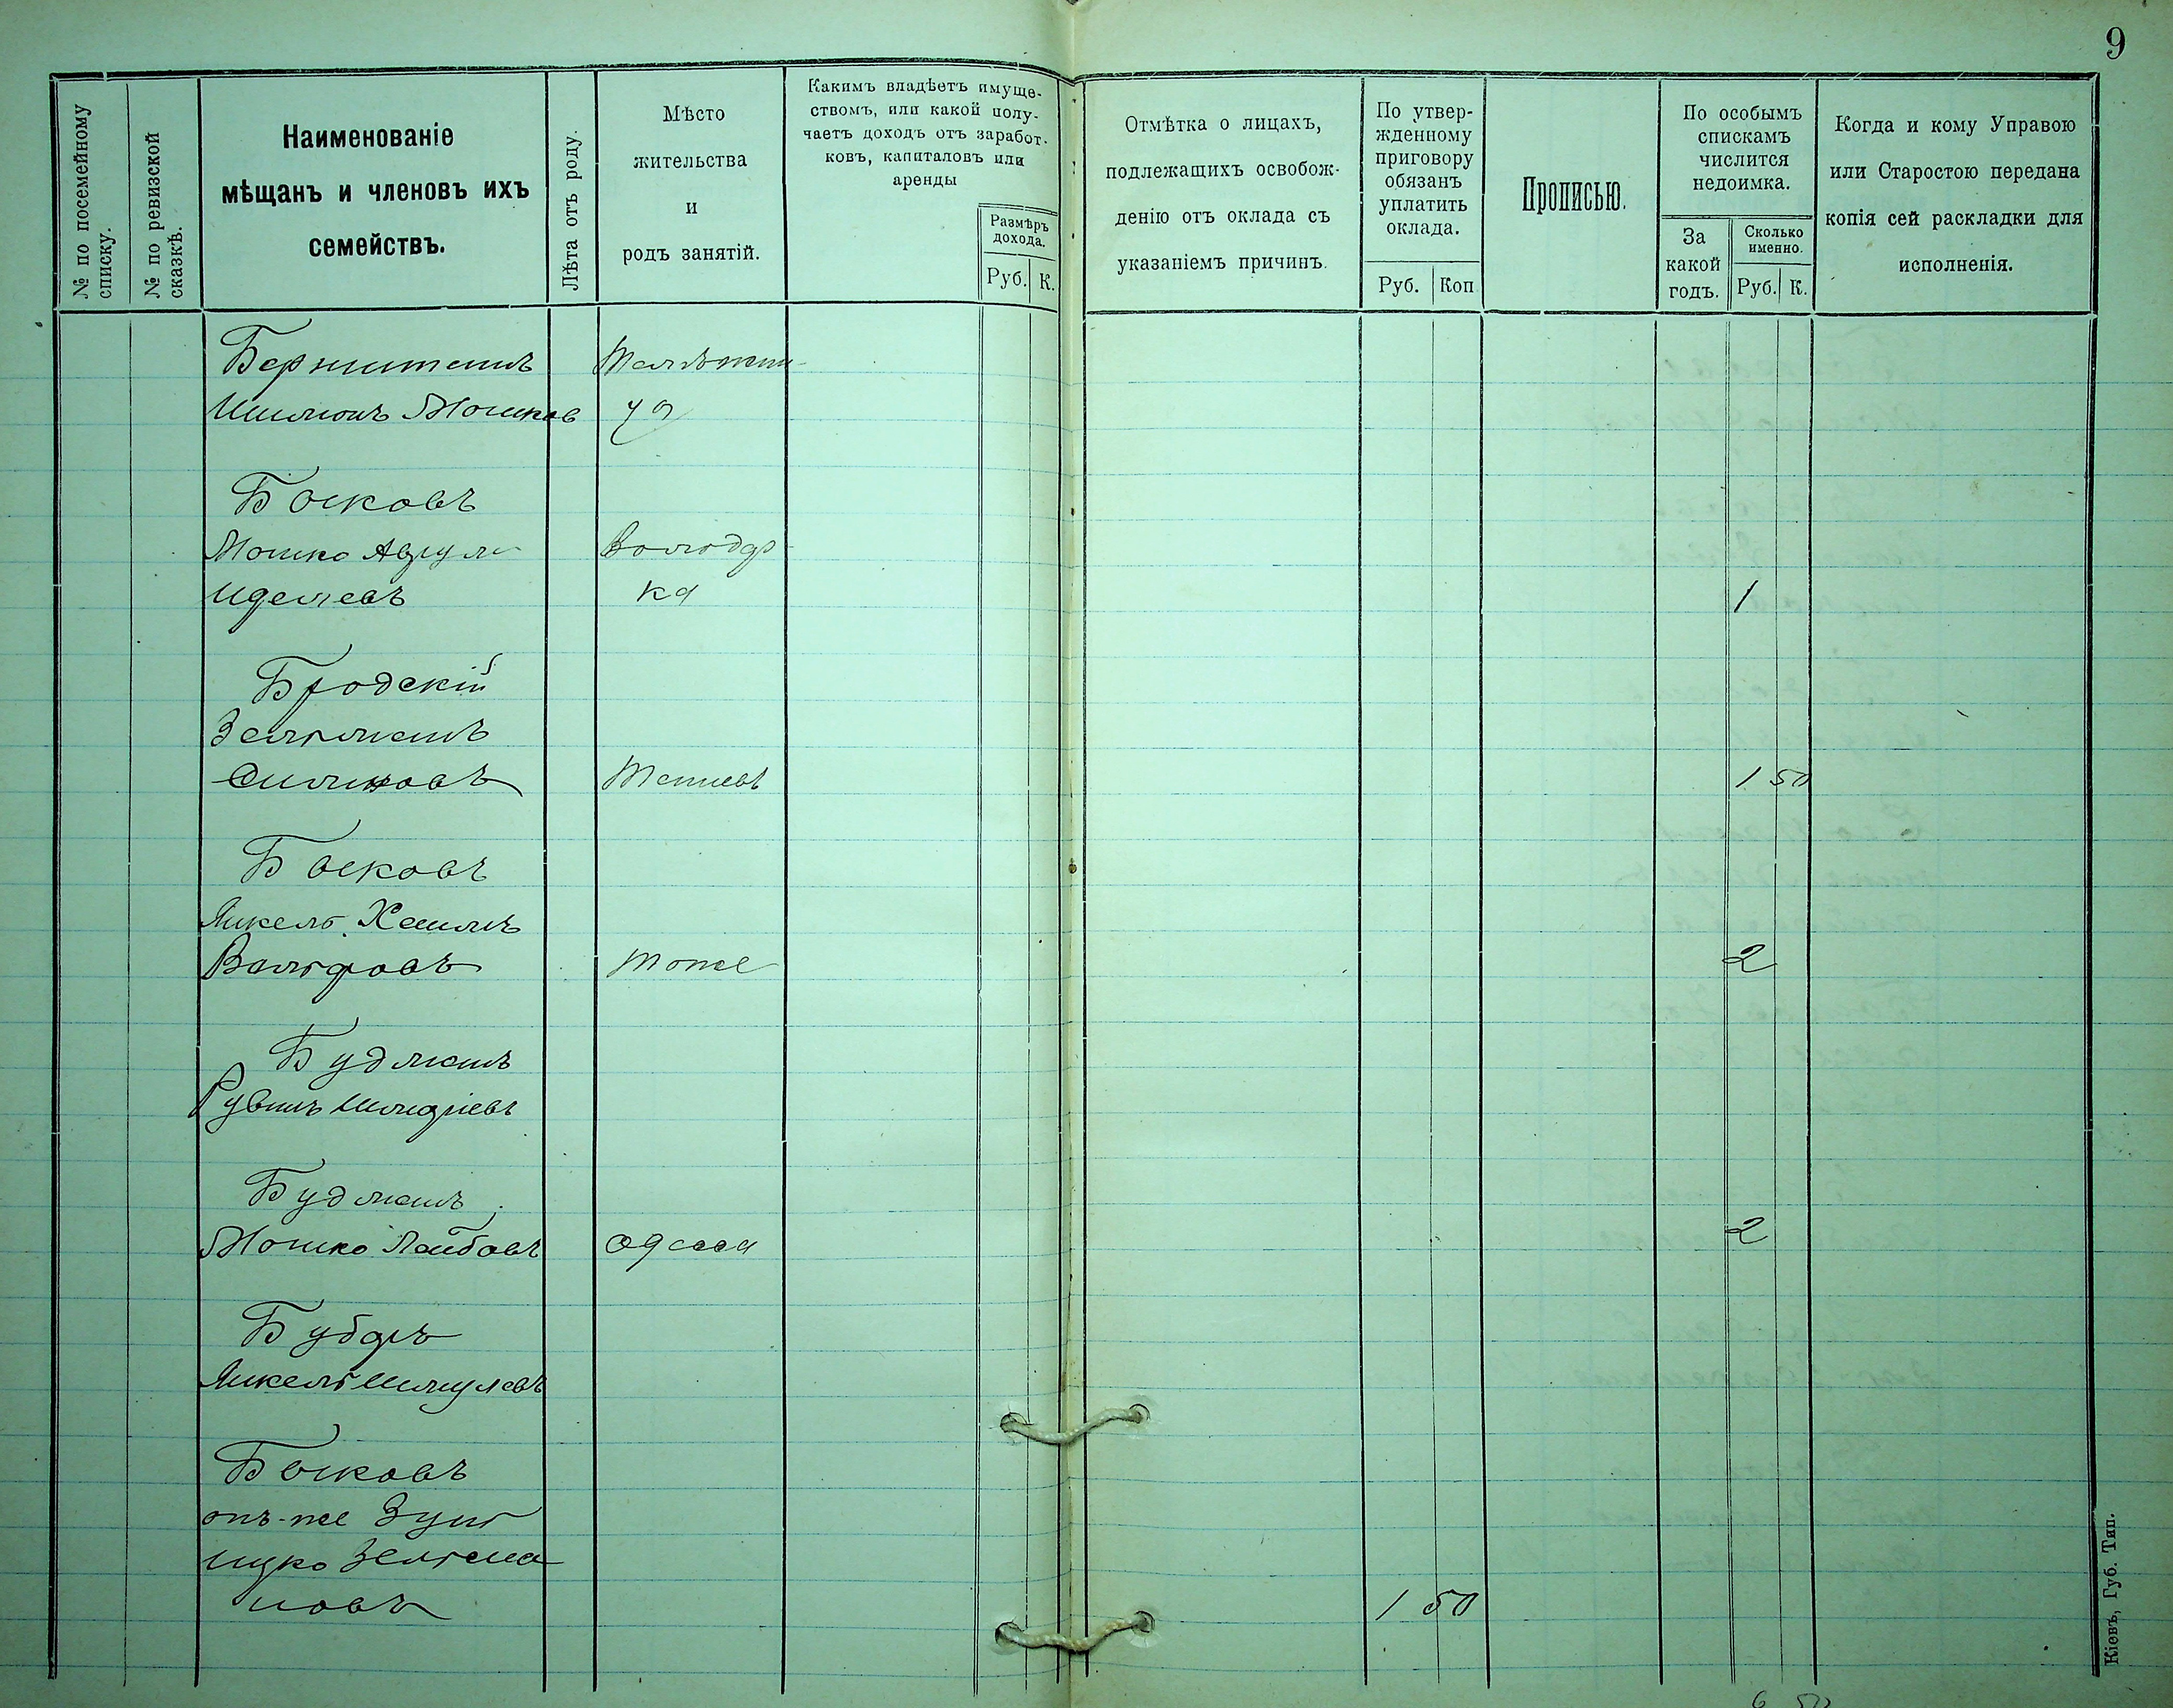 9
№ по посемейному
списку.
№ по ревизской
сказкѣ.
Наименованіе
мѣщанъ и членовъ ихъ
семействъ.
Лѣта отъ роду.
Мѣсто
жительства
и
родъ занятій.
Какимъ владѣетъ имуще-
ствомъ, или какой полу-
чаетъ доходъ отъ заработ-
ковъ, капиталовъ или
аренды
Размѣръ
дохода.
Руб. К.
Отмѣтка о лицахъ,
подлежащихъ освобож-
денію отъ оклада съ
указаніемъ причинъ.
По утвер-
жденному
приговору
обязанъ
уплатить
оклада.
Руб. Коп
Прописью.
По особымъ
спискамъ
числится
недоимка.
За
какой
годъ.
Сколько
именно.
Руб. К.
Когда и кому Управою
или Старостою передана
копія сей раскладки для
исполненія.
Мошков
Быковъ
Мошко Аврум
Володар
Иделевъ ка 1
Бродскій
Зельманъ
Тетіевъ 1 50
Быковъ
Янкель Хаимъ
Вольфовъ тоже 2
Будманъ
Рувинъ
Будманъ
Мошко Лейбовъ Одесса 2
Бубаръ
Янкель Шмулевъ
Быковъ
онъ-же Зунь
Ицко Зельма
новъ 1 50
6 50
Кіевъ, Губ. Тип.